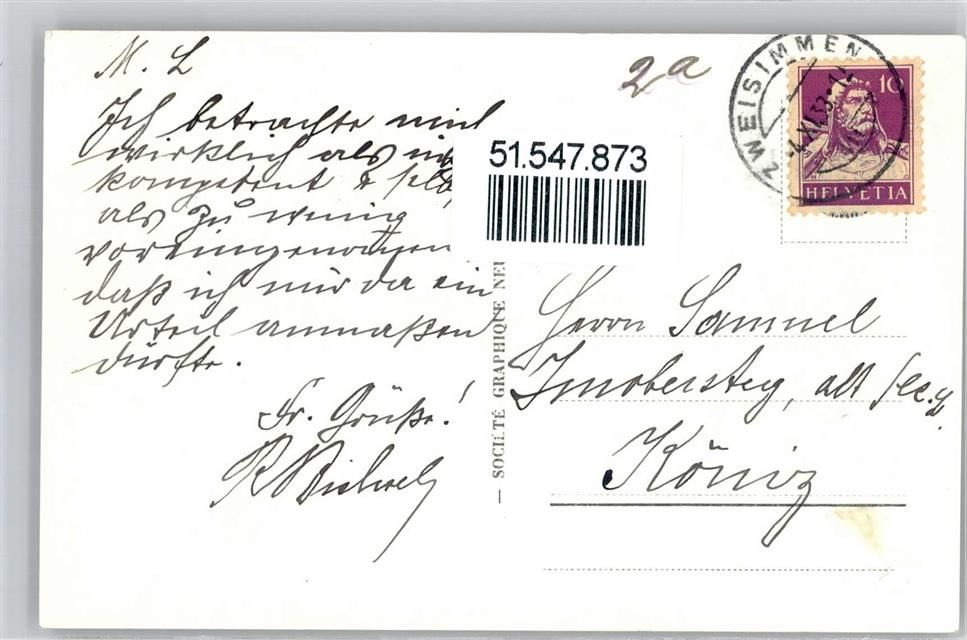 M. L
Ich betrachte mich
wirklich als
kompetent &
als zu wenig
voreingenommen
daß ich mir da ein
Urteil anmaßen
dürfte.
Fr. Grüße!
2a
51.547.873
ZWEISIMMEN
10
HELVETIA
— SOCIÉTÉ GRAPHIQUE NEU
Herrn Samuel
Imobersteg, alt
Köniz